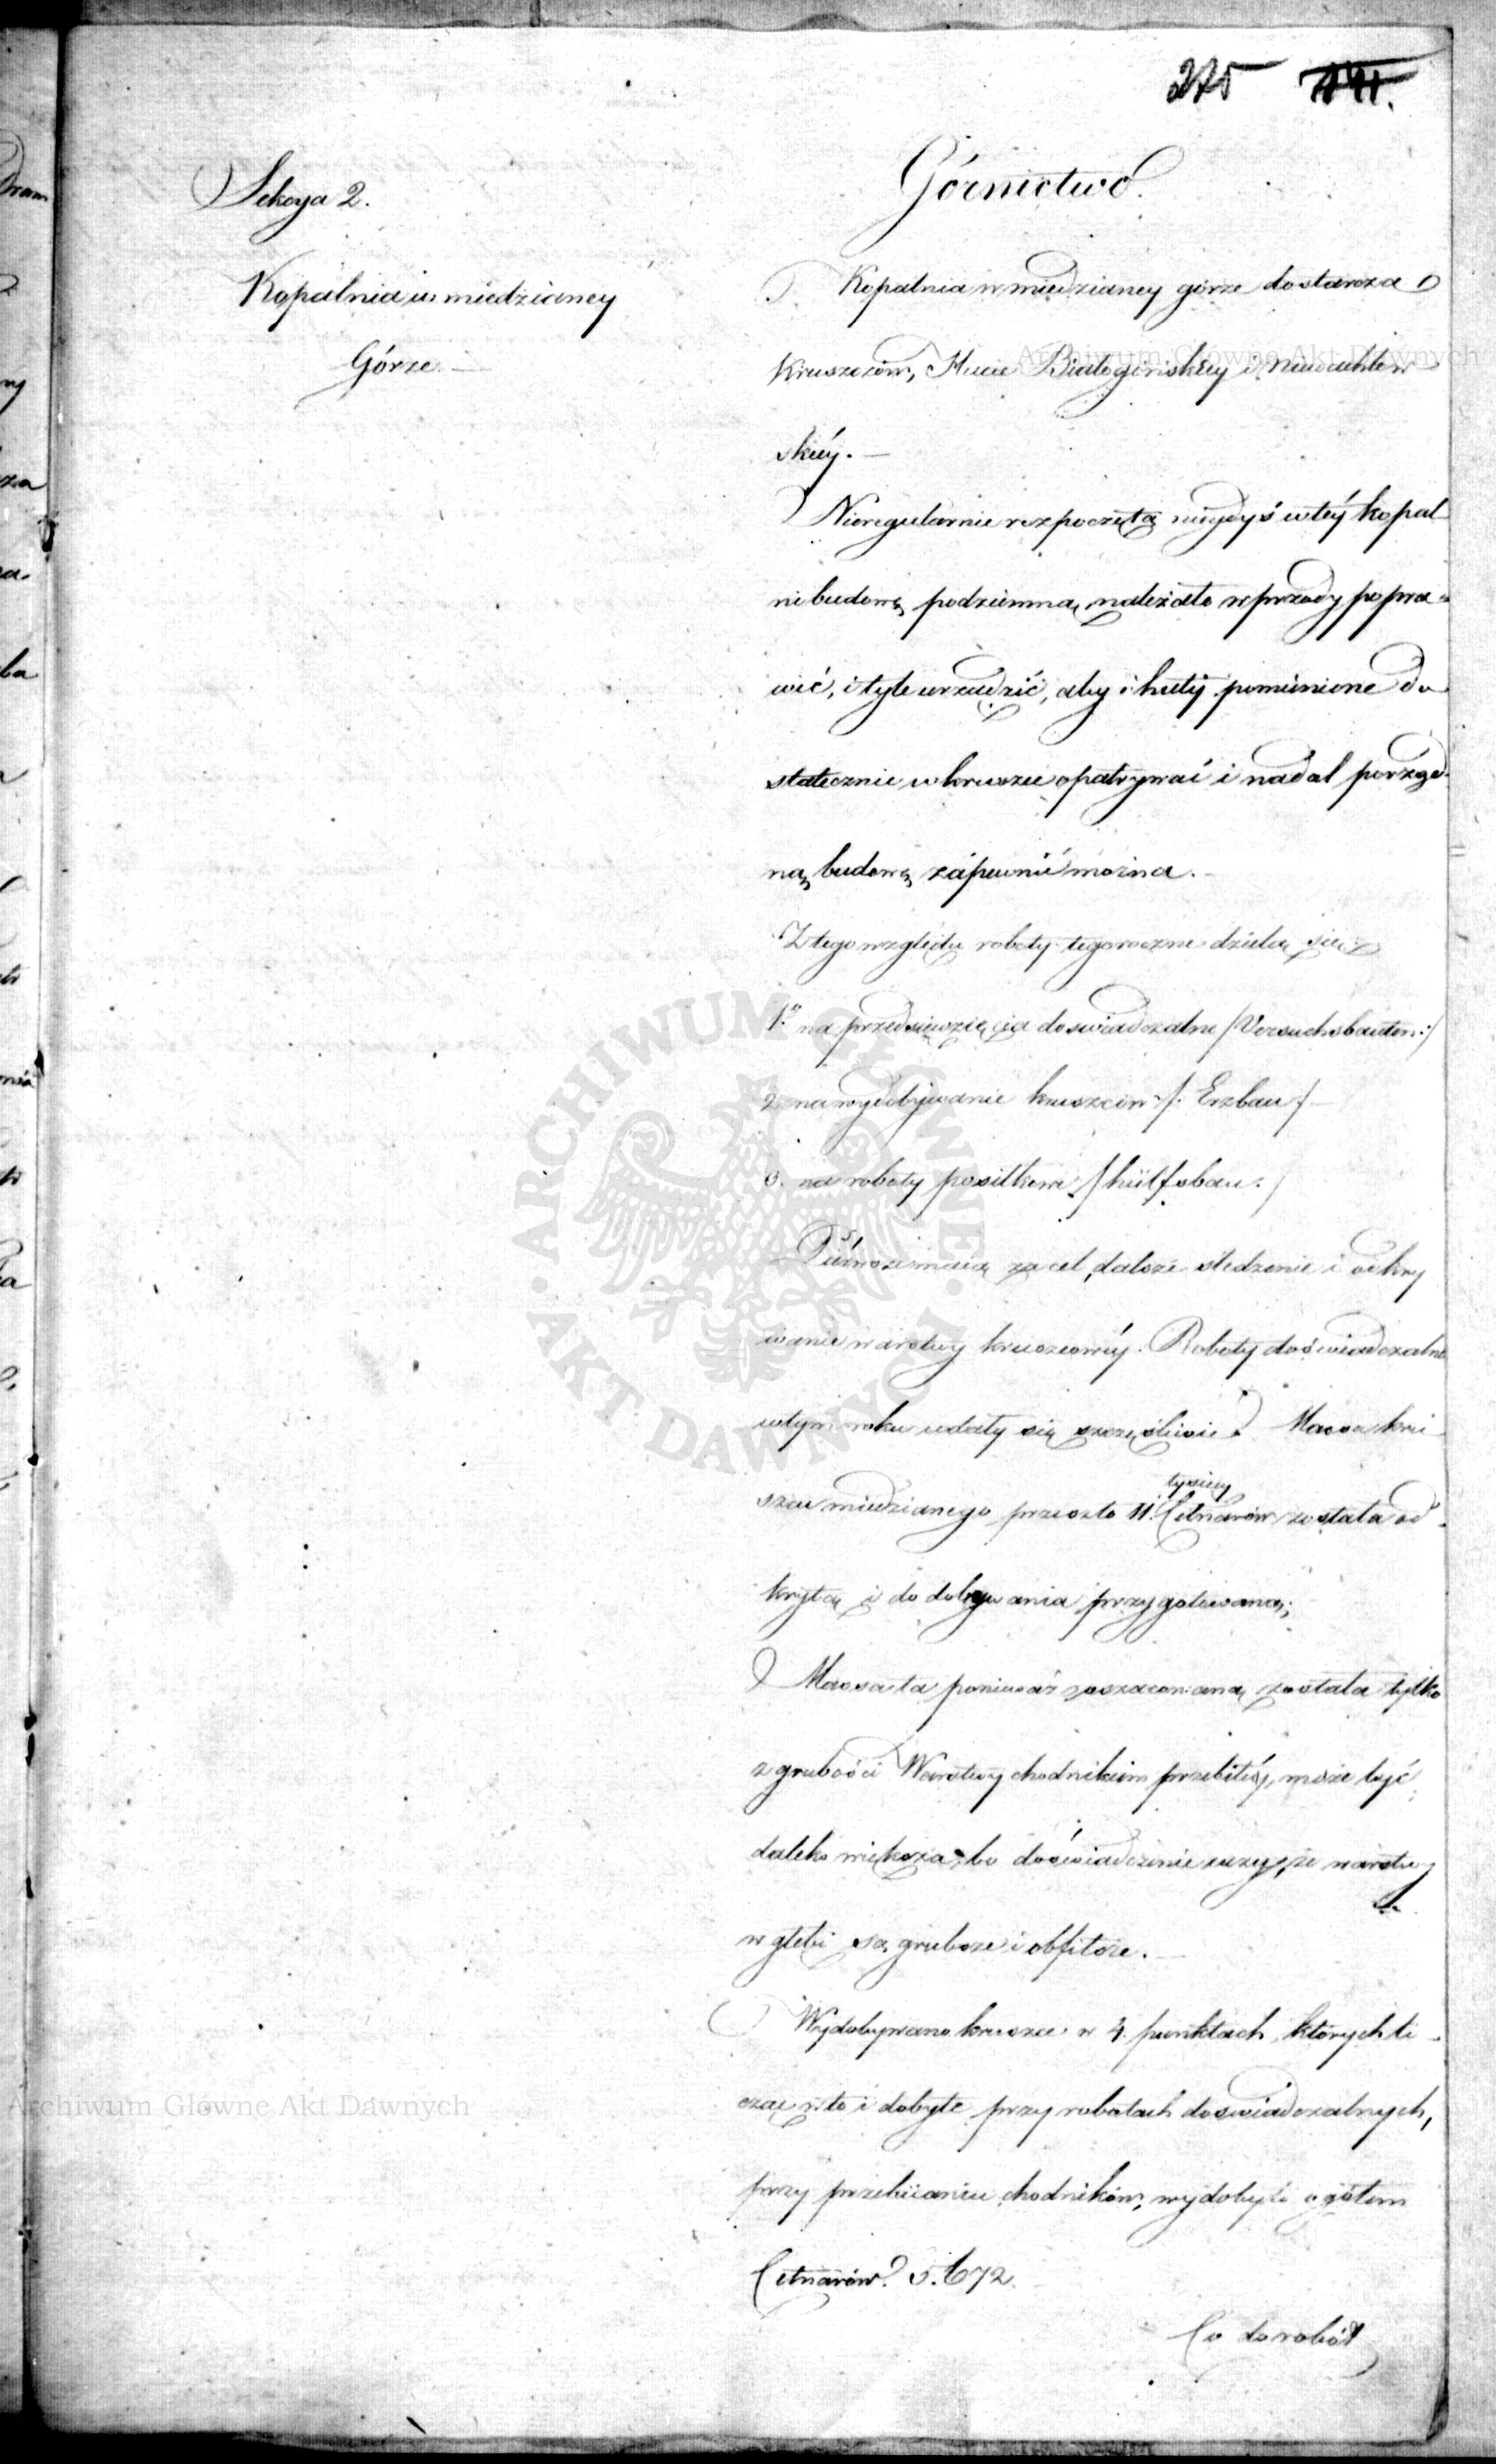 275
Sekcya 2.
Górnictwo.
Kopalnia w miedzianey
Górze.
Kopalnia w miedzianey górze dostarcza
Kruszców, Hucie Białogońskiey i Niewachlow
skiéy.
Nieregularnie rozpoczętą niegdyś w téy kopal
ni budowę podziemną, należało wprzody popra=
wić, i tyle urządzić, aby i huty pomienione do
statecznie w kruszce opatrywać i nadal porząd
ną budowę zapewnić można.
Z tego względu roboty tegoroczne dzielą się
1.o na przedsięwzięcia doswiadczalne /Versuchsbauten:/
2. na wydobywanie kruszców /: Erzbau /
3. na roboty posiłkowe /hülfsbau:/
Piérwsze maią za cel, dalsze sledzenie i odkry
wanie warstwy kruszcowéy. Roboty doświadczalne
w tym roku udały się szczęśliwie. Massa kru
szcu miedzianego przeszło 11. tysięcy Cetnarów została od
krytą i do dobywania przygotowaną;
Massa ta ponieważ poszacowaną została tylko
z grubości Warstwy chodnikiem przebitéy, może być
daleko większa, bo doświadczenie uczy, że warstwy
w głębi są grubsze i obfitsze.
Wydobywano kruszce w 4. punktach, których li
cząc w to i dobyte przy robotach doswiadczalnych,
przy przebiianiu chodników, wydobyto ogółem
Cetnarów 5.672.
Co do robót
Archiwum Główne Akt Dawnych
ARCHIWUM GŁÓWNE AKT DAWNYCH
Archiwum Główne Akt Dawnych